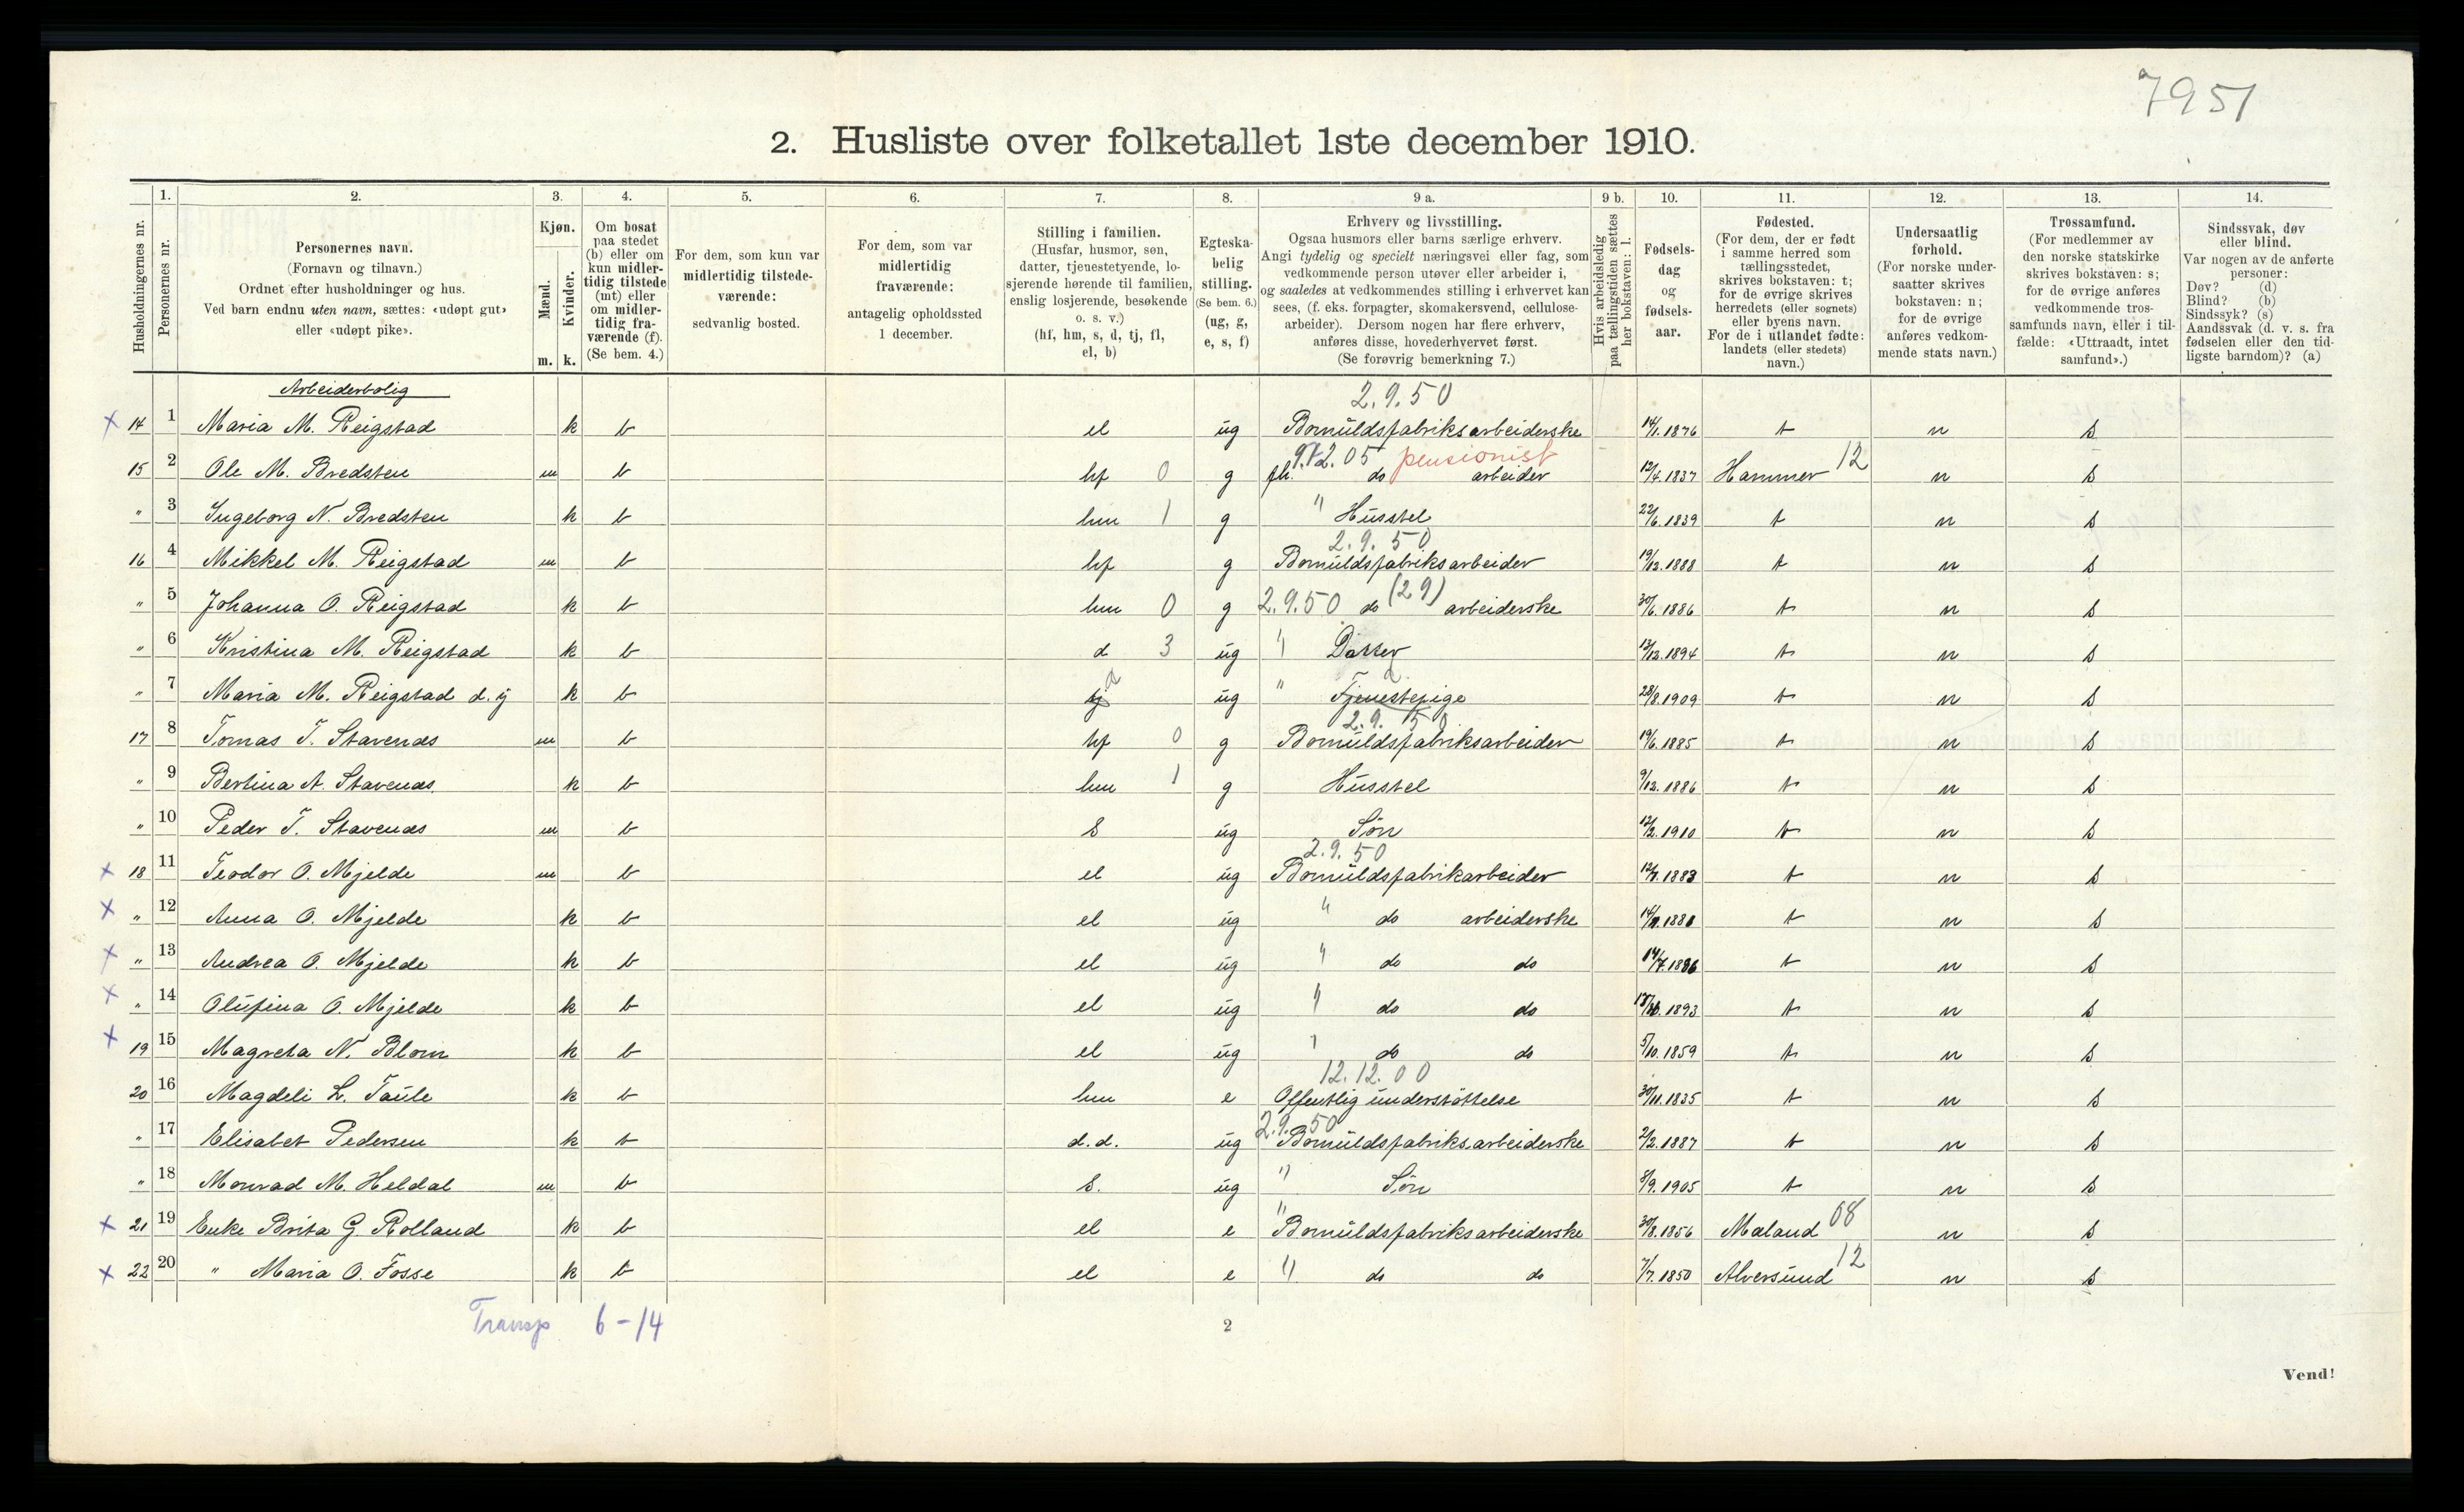 7951
2. Husliste over folketallet 1ste december 1910.
1. 2. 3. 4. 5. 6. 7. 8. 9 a. 9 b. 10. 11. 12. 13. 14.
Husholdningernes nr.
Personernes nr.
Personernes navn.
(Fornavn og tilnavn.)
Ordnet efter husholdninger og hus.
Ved barn endnu uten navn, sættes: «udøpt gut»
eller «udøpt pike».
Kjøn.
Mænd.
Kvinder.
m. k.
Om bosat
paa stedet
(b) eller om
kun midler-
tidig tilstede
(mt) eller
om midler-
tidig fra-
værende (f).
(Se bem. 4.)
For dem, som kun var
midlertidig tilstede-
værende:
sedvanlig bosted.
For dem, som var
midlertidig
fraværende:
antagelig opholdssted
1 december.
Stilling i familien.
(Husfar, husmor, søn,
datter, tjenestetyende, lo-
sjerende hørende til familien,
enslig losjerende, besøkende
o. s. v.)
(hf, hm, s, d, tj, fl,
el, b)
Egteska-
belig
stilling.
(Se bem. 6.)
(ug, g,
e, s, f)
Erhverv og livsstilling.
Ogsaa husmors eller barns særlige erhverv.
Angi tydelig og specielt næringsvei eller fag, som
vedkommende person utøver eller arbeider i,
og saaledes at vedkommendes stilling i erhvervet kan
sees, (f. eks. forpagter, skomakersvend, cellulose-
arbeider). Dersom nogen har flere erhverv,
anføres disse, hovederhvervet først.
(Se forøvrig bemerkning 7.)
Hvis arbeidsledig
paa tællingstiden sættes
her bokstaven: l.
Fødsels-
dag
og
fødsels-
aar.
Fødested.
(For dem, der er født
i samme herred som
tællingsstedet,
skrives bokstaven: t;
for de øvrige skrives
herredets (eller sognets)
eller byens navn.
For de i utlandet fødte:
landets (eller stedets)
navn.)
Undersaatlig
forhold.
(For norske under-
saatter skrives
bokstaven: n;
for de øvrige
anføres vedkom-
mende stats navn.)
Trossamfund.
(For medlemmer av
den norske statskirke
skrives bokstaven: s;
for de øvrige anføres
vedkommende tros-
samfunds navn, eller i til-
fælde: «Uttraadt, intet
samfund».)
Sindssvak, døv
eller blind.
Var nogen av de anførte
personer:
Døv? (d)
Blind? (b)
Sindssyk? (s)
Aandssvak (d. v. s. fra
fødselen eller den tid-
ligste barndom)? (a)
Arbeiderbolig
2.9.50
x 14 1 Maria M. Reigstad k b el ug Bomuldsfabriksarbeiderske 14/1.1876 t n s
9.12.05 pensionist
15 2 Ole M. Bredsten m b hf 0 g fh. do arbeider 12/4.1837 Hammer 12 n s
" 3 Ingeborg N. Bredsten k b hm 1 g " Husstel 22/6.1839 t n s
2.9.50
16 4 Mikkel M. Reigstad m b hf g Bomuldsfabriksarbeider 19/12.1888 t n s
" 5 Johanna O. Reigstad k b hm 0 g 2.9.50 do (29) arbeiderske 30/6.1886 t n s
" 6 Kristina M. Reigstad k b d 3 ug " Datter 13/12.1894 t n s
" 7 Maria M. Reigstad d. y k b tj d ug " Tjenestepige 28/8.1909 t n s
2.9.50
17 8 Tomas T. Stavenæs m b hf 0 g Bomuldsfabriksarbeider 19/6.1885 t n s
" 9 Bertina A. Stavenæs k b hm 1 g Husstel 9/12.1886 t n s
" 10 Peder T. Stavenæs m b s ug Søn 12/2.1910 t n s
2.9.50
x 18 11 Teodor O. Mjelde m b el ug Bomuldsfabrikarbeider t n s
x " 12 Anna O. Mjelde k b el ug " do arbeiderske t n s
x " 13 Andrea O. Mjelde k b el ug " do do 14/7.1886 t n s
x " 14 Olufina O. Mjelde k b el ug " do do t n s
x 19 15 Magreta N. Blom k b el ug " do do 5/10.1859 t n s
12.12.00
20 16 Magdeli L. Taule k b hm e Offentlig understøttelse 30/11.1835 t n s
2.9.50
" 17 Elisabet Pedersen k b d.d. ug Bomuldsfabriksarbeiderske 2/2.1887 t n s
" 18 Monrad M. Heldal m b s. ug " Søn 8/9.1905 t n s
x 21 19 Enke Brita G. Rolland k b el e " Bomuldsfabriksarbeiderske 30/8.1856 Maland 08 n s
x 22 20 " Maria O. Fosse k b el e " do do 7/7.1850 Alversund 12 n s
Transp 6-14
2
Vend!